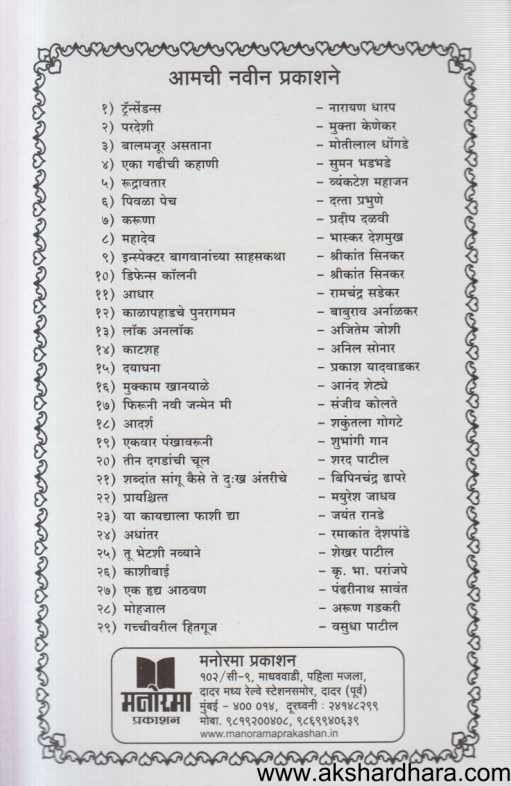 आमची नवीन प्रकाशने
१) ट्रॅन्सेंडन्स - नारायण धारप
२) परदेशी - मुक्ता केणेकर
३) बालमजूर असताना - मोतीलाल धोंगडे
४) एका गढीची कहाणी - सुमन भडभडे
५) रूद्रावतार - व्यंकटेश महाजन
६) पिवळा पेच - दत्ता प्रभुणे
७) करूणा - प्रदीप दळवी
८) महादेव - भास्कर देशमुख
९) इन्स्पेक्टर बागवानांच्या साहसकथा - श्रीकांत सिनकर
१०) डिफेन्स कॉलनी - श्रीकांत सिनकर
११) आधार - रामचंद्र सडेकर
१२) काळापहाडचे पुनरागमन - बाबुराव अर्नाळकर
१३) लॉक अनलॉक - अजितेम जोशी
१४) काटशह - अनिल सोनार
१५) दयाघना - प्रकाश यादवाडकर
१६) मुक्काम खानयाळे - आनंद शेट्ये
१७) फिरूनी नवी जन्मेन मी - संजीव कोलते
१८) आदर्श - शकुंतला गोगटे
१९) एकवार पंखावरूनी - शुभांगी गान
२०) तीन दगडांची चूल - शरद पाटील
२१) शब्दांत सांगू कैसे ते दुःख अंतरीचे - बिपिनचंद्र ढापरे
२२) प्रायश्चित्त - मयुरेश जाधव
२३) या कायद्याला फाशी द्या - जयंत रानडे
२४) अधांतर - रमाकांत देशपांडे
२५) तू भेटशी नव्याने - शेखर पाटील
२६) काशीबाई - कृ. भा. परांजपे
२७) एक हृद्य आठवण - पंढरीनाथ सावंत
२८) मोहजाल - अरूण गडकरी
२९) गच्चीवरील हितगूज - वसुधा पाटील
मनोरमा
प्रकाशन
मनोरमा प्रकाशन
१०२/सी-९, माधववाडी, पहिला मजला,
दादर मध्य रेल्वे स्टेशनसमोर, दादर (पूर्व)
मुंबई - ४०० ०१४, दूरध्वनी : २४१४८२९९
मोबा. ९८१९२००४०८, ९८६९९४०६३९
www.manoramaprakashan.in
www.akshardhara.com